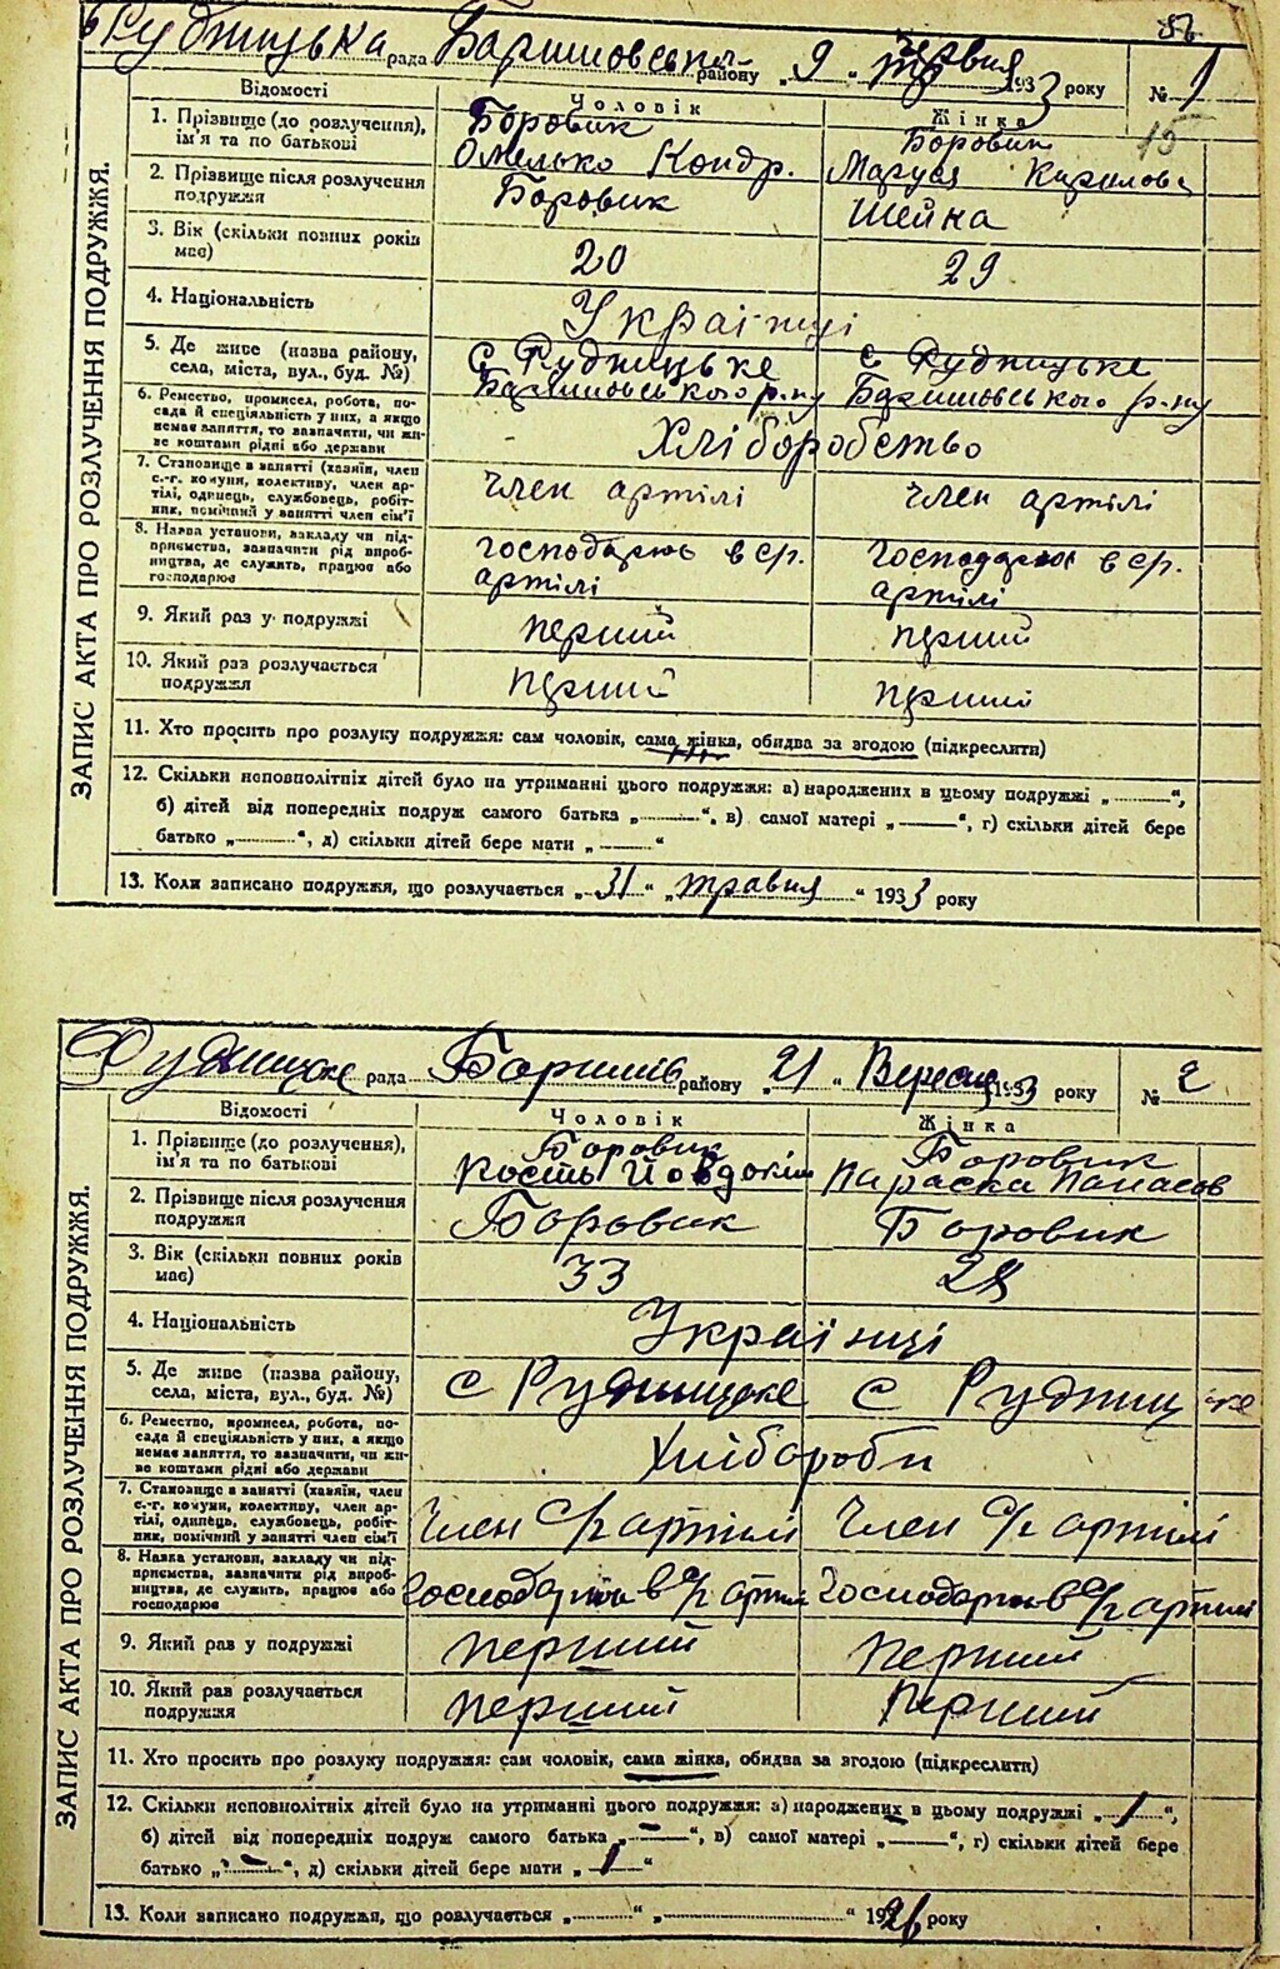 56
Рудницька рада Баришовського району „ 9 “ Червня 1933 року № 1
15
ЗАПИС АКТА ПРО РОЗЛУЧЕННЯ ПОДРУЖЖЯ.
Відомості Чоловік Жінка
1. Прізвище (до розлучення), Боровик Боровик
ім'я та по батькові Омелько Кондр. Маруся Кирилова
2. Прізвище після розлучення Боровик Шейка
подружжя
3. Вік (скільки повних років 20 29
має)
4. Національність Українці
5. Де живе (назва району, С Рудницьке с Рудницьке
села, міста, вул., буд. №) Баришовського р-ну Баришовського р-ну
6. Ремество, промисел, робота, по-
сада й спеціяльність у них, а якщо Хліборобство
немає заняття, то зазначити, чи жи-
ве коштами рідні або держави
7. Становище в занятті (хазяїн, член член артілі член артілі
с.-г. комуни, колективу, член ар-
тілі, одинець, службовець, робіт-
ник, помічний у занятті член сім'ї
8. Назва установи, закладу чи під- господарює в ср. господарює в ср.
приємства, зазначити рід вироб- артілі артілі
ництва, де служить, працює або
господарює
9. Який раз у подружжі перший перший
10. Який раз розлучається перший перший
подружжя
11. Хто просить про розлуку подружжя: сам чоловік, сама жінка, обидва за згодою (підкреслити)
12. Скільки неповнолітніх дітей було на утриманні цього подружжя: а) народжених в цьому подружжі „ — “,
б) дітей від попередніх подруж самого батька „ — “, в) самої матері „ — “, г) скільки дітей бере
батько „ — “, д) скільки дітей бере мати „ — “
13. Коли записано подружжя, що розлучається „ 31 “ „ травня “ 1933 року
Рудницьке рада Баришів району „ 21 “ Вересня 1933 року № 2
ЗАПИС АКТА ПРО РОЗЛУЧЕННЯ ПОДРУЖЖЯ.
Відомості Чоловік Жінка
1. Прізвище (до розлучення), Боровик Боровик
ім'я та по батькові Кость Йовдокім Параска Панасов
2. Прізвище після розлучення Боровик Боровик
подружжя
3. Вік (скільки повних років 33 28
має)
4. Національність Українці
5. Де живе (назва району, с Рудницьке с Рудницьке
села, міста, вул., буд. №)
6. Ремество, промисел, робота, по-
сада й спеціяльність у них, а якщо Хлібороби
немає заняття, то зазначити, чи жи-
ве коштами рідні або держави
7. Становище в занятті (хазяїн, член
с.-г. комуни, колективу, член ар- Член с/г артілі Член с/г артілі
тілі, одинець, службовець, робіт-
ник, помічний у занятті член сім'ї
8. Назва установи, закладу чи під-
приємства, зазначити рід вироб- Господарює в с/г артілі Господарює в с/г артілі
ництва, де служить, працює або
господарює
9. Який раз у подружжі перший перший
10. Який раз розлучається перший перший
подружжя
11. Хто просить про розлуку подружжя: сам чоловік, сама жінка, обидва за згодою (підкреслити)
12. Скільки неповнолітніх дітей було на утриманні цього подружжя: а) народжених в цьому подружжі „ 1 “,
б) дітей від попередніх подруж самого батька „ — “, в) самої матері „ — “, г) скільки дітей бере
батько „ — “, д) скільки дітей бере мати „ 1 “
13. Коли записано подружжя, що розлучається „ “ „ “ 1926 року